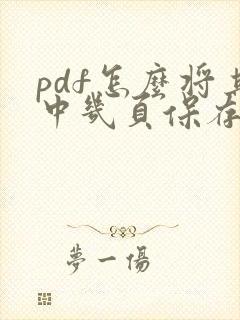 pdf怎麼將其
中幾頁保存
夢一傷